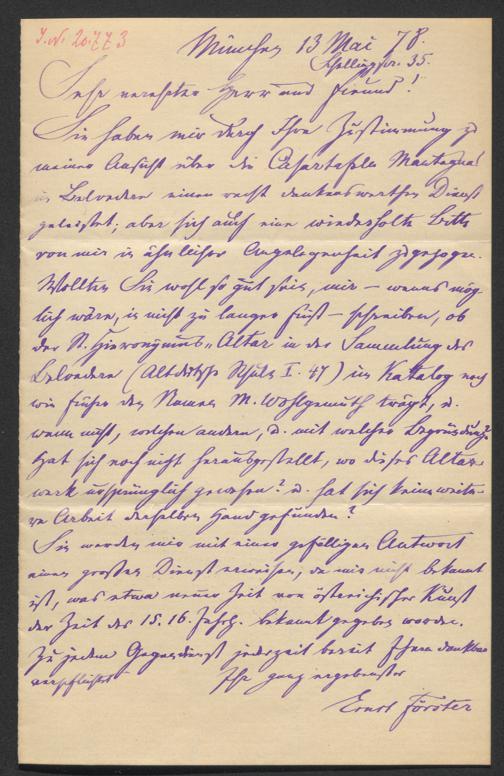 J.N. 20.773
München 13 Mai 78.
Schellingstr. 35.
Sehr verehrter Herr und Freund!
Sie haben mir durch Ihre Zustimmung zu
meiner Ansicht über die Casartafeln Mantegna's
in Belvedere einen recht dankenswerthen Dienst
geleistet; aber sich auch eine wiederholte Bitte
von mir in ähnlicher Angelegenheit zugezogen.
Wollten Sie wohl so gut sein, mir – wenns mög-
lich wäre, in nicht zu langer Frist – schreiben, ob
der St. Hieronymus-Altar in der Sammlung des
Belvedere (Altdeutsche Schule I. 47) im Katalog noch
wie früher den Namen M. Wohlgemuth trägt, u.
wenn nicht, welchen andern, u. mit welcher Begründung?
Hat sich noch nicht herausgestellt, wo dieses Altar-
werk ursprünglich gewesen? u. hat sich keine weite-
re Arbeit derselben Hand gefunden?
Sie werden mir mit einer gefälligen Antwort
einen großen Dienst erweisen, da mir nicht bekannt
ist, was etwa neuer Zeit von österreichischer Kunst
der Zeit des 15. 16. Jahrh. bekannt gegeben worden.
Zu jedem Gegendienst jederzeit bereit Ihnen dankbar
verpflichtet
Ihr ganz ergebenster
Ernst Förster